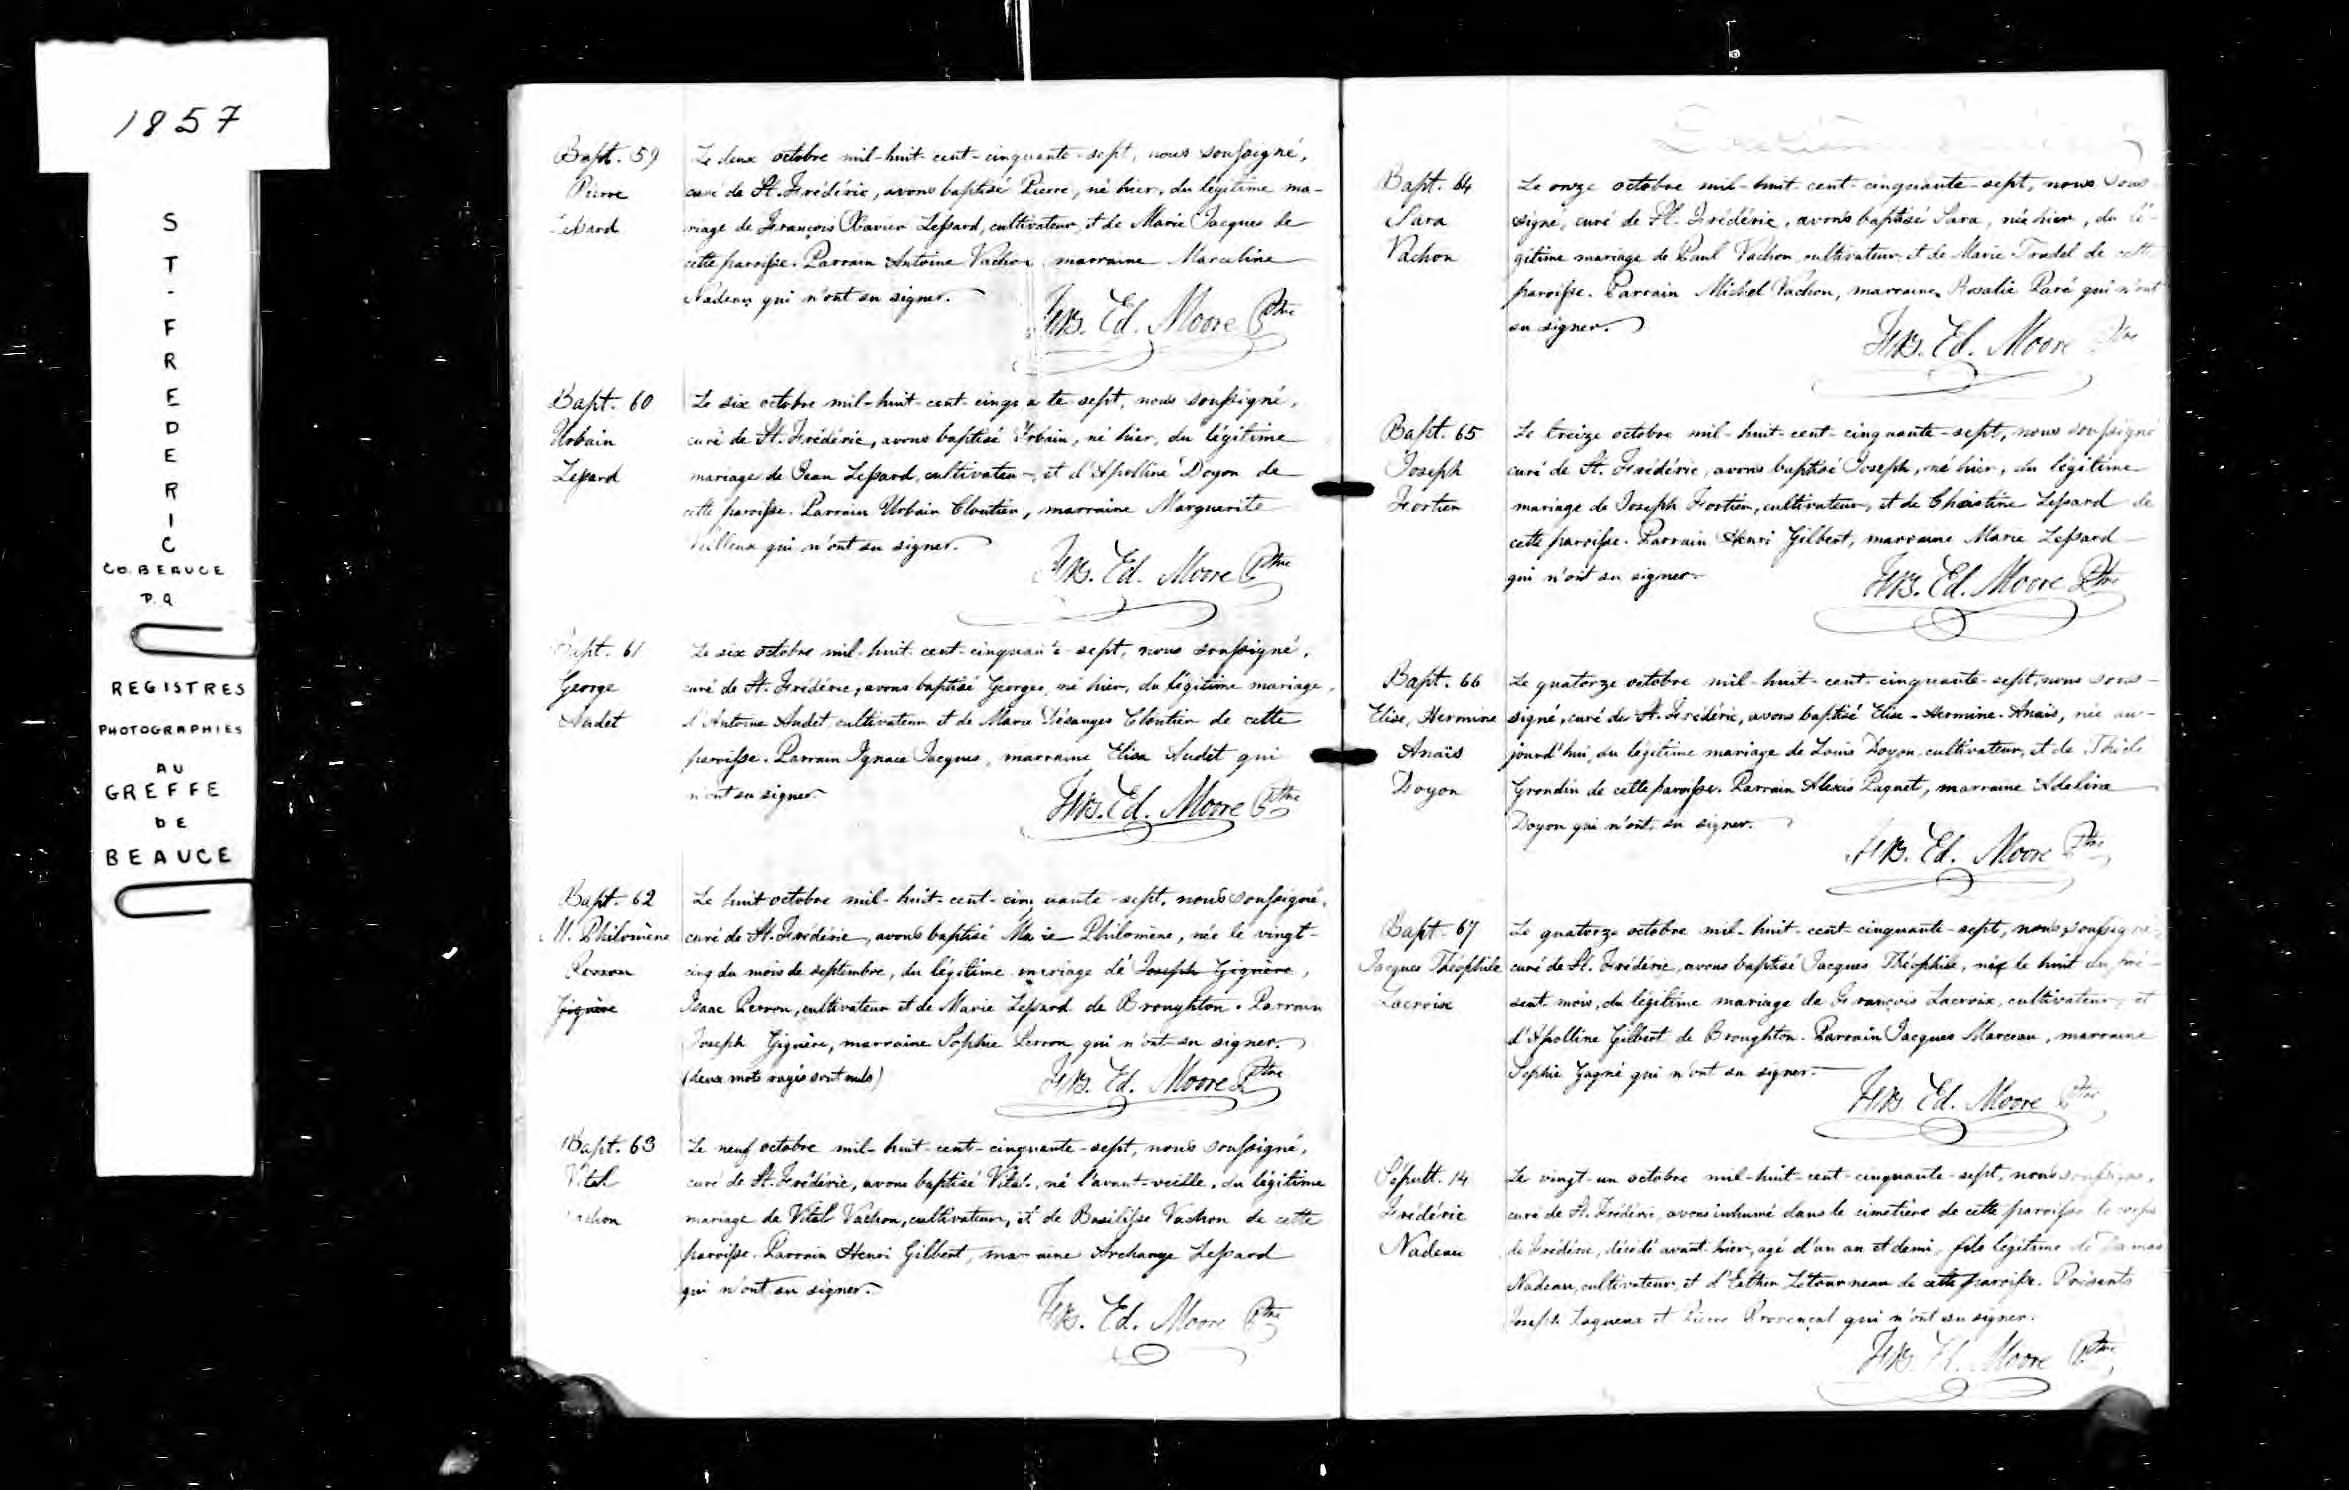 1857
ST-FREDERIC
CO. BEAUCE
P.Q
REGISTRES
PHOTOGRAPHIES
AU
GREFFE
DE
BEAUCE
Bapt. 59
Pierre
Lessard
Le deux octobre mil-huit-cent-cinquante-sept, nous soussigné,
curé de St. Frédéric, avons baptisé Pierre, né hier, du légitime ma-
riage de François Xavier Lessard, cultivateur, et de Marie Jacques de
cette paroisse. Parrain Antoine Vachon marraine Marceline
Nadeau qui n'ont su signer.
Frs. Ed. Moore Ptre
Bapt. 60
Urbain
Lessard
Le six octobre mil-huit-cent-cinqua te-sept, nous soussigné,
curé de St. Frédéric, avons baptisé Urbain, né hier, du légitime
mariage de Jean Lessard, cultivateur, et d'Apolline Doyon de
cette paroisse. Parrain Urbain Cloutier, marraine Marguerite
Veilleux qui n'ont su signer.
Frs. Ed. Moore Ptre
Bapt. 61
George
Audet
Le six octobre mil-huit-cent-cinquante-sept, nous soussigné,
curé de St. Frédéric, avons baptisé George, né hier, du légitime mariage
d'Antoine Audet, cultivateur et de Marie Désanges Cloutier de cette
paroisse. Parrain Ignace Jacques, marraine Elisa Audet qui
n'ont su signer.
Frs. Ed. Moore Ptre
Bapt. 62
M. Philomène
Perron
Giguère
Le huit octobre mil-huit-cent-cinquante-sept, nous soussigné,
curé de St. Frédéric, avons baptisé Marie Philomène, née le vingt-
cinq du mois de septembre, du légitime mariage de Joseph Giguère,
Isaac Perron, cultivateur et de Marie Lessard de Broughton. Parrain
Joseph Giguère, marraine Sophie Perron qui n'ont su signer.
(deux mots rayés sont nuls)
Frs. Ed. Moore Ptre
Bapt. 63
Vital
Vachon
Le neuf octobre mil-huit-cent-cinquante-sept, nous soussigné,
curé de St. Frédéric, avons baptisé Vital, né l'avant-veille, du légitime
mariage de Vital Vachon, cultivateur, et de Basilisse Vachon de cette
paroisse. Parrain Henri Gilbert, marraine Archange Lessard
qui n'ont su signer.
Frs. Ed. Moore Ptre
Bapt. 64
Sara
Vachon
Le onze octobre mil-huit-cent-cinquante-sept, nous sous
signé, curé de St. Frédéric, avons baptisé Sara, née hier, du lé-
gitime mariage de Paul Vachon cultivateur et de Marie Trudel de cette
paroisse. Parrain Michel Vachon, marraine Rosalie Paré qui n'ont
su signer.
Frs. Ed. Moore Ptre
Bapt. 65
Joseph
Fortier
Le treize octobre mil-huit-cent-cinquante-sept, nous soussigné
curé de St. Frédéric, avons baptisé Joseph, né hier, du légitime
mariage de Joseph Fortier, cultivateur, et de Christine Lessard de
cette paroisse. Parrain Henri Gilbert, marraine Marie Lessard
qui n'ont su signer.
Frs. Ed. Moore Ptre
Bapt. 66
Elise, Hermine
Anaïs
Doyon
Le quatorze octobre mil-huit-cent-cinquante-sept, nous sous-
signé, curé de St. Frédéric, avons baptisé Elise-Hermine-Anaïs, née au-
jourd'hui, du légitime mariage de Louis Doyon, cultivateur, et de
Grondin de cette paroisse. Parrain Alexis Paquet, marraine Adeline
Doyon qui n'ont su signer.
Frs. Ed. Moore Ptre
Bapt. 67
Jacques Théophile
Lacroix
Le quatorze octobre mil-huit-cent-cinquante-sept, nous soussigné
curé de St. Frédéric, avons baptisé Jacques Théophile, né le huit du pré-
sent mois, du légitime mariage de François Lacroix, cultivateur, et
d'Apolline Gilbert de Broughton. Parrain Jacques Marceau, marraine
Sophie Gagné qui n'ont su signer.
Frs. Ed. Moore Ptre
Sépult. 14
Frédéric
Nadeau
Le vingt-un octobre mil-huit-cent-cinquante-sept, nous soussigné,
curé de St. Frédéric, avons inhumé dans le cimetière de cette paroisse le corps
de Frédéric, décédé avant-hier, agé d'un an et demi, fils légitime de Damas
Nadeau, cultivateur, et d'Esther Létourneau de cette paroisse. Présents
Joseph Lagueux et Pierre Provençal qui n'ont su signer.
Frs. Ed. Moore Ptre